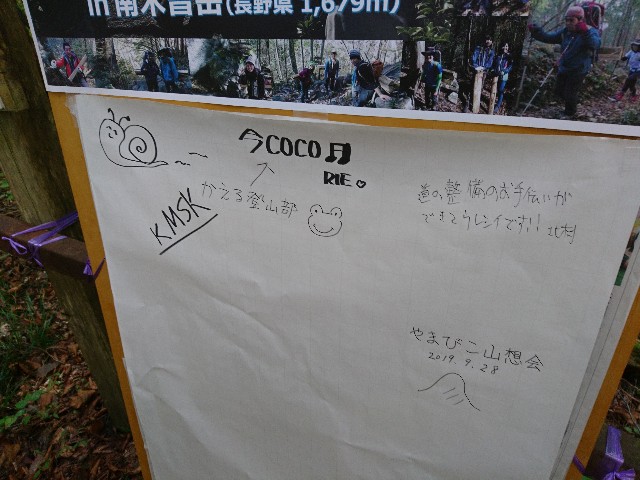 in南木曽岳(長野県 1,679m)
今COCO月
RIE
かえる登山部
KMSK
道の整備のお手伝いが
できてうれしいです!! 北村
やまびこ山想会
2019.9.28